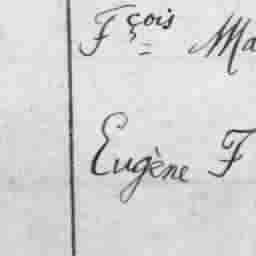 Fçois Ma
Eugène F